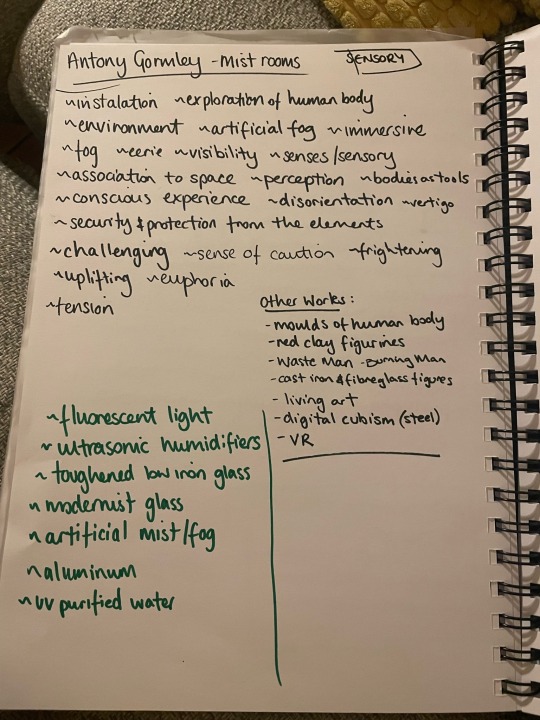 Antony Gormley - Mist rooms
SENSORY
~instalation ~exploration of human body
~environment ~artificial fog ~immersive
~fog ~eerie ~visibility ~senses/sensory
~association to space ~perception ~bodies as tools
~conscious experience ~disorientation ~vertigo
~security & protection from the elements
~challenging ~sense of caution ~frightening
~uplifting ~euphoria
~tension
Other Works:
- moulds of human body
- red clay figurines
- Waste Man - Burning Man
- cast iron & fibreglass figures
- living art
- digital cubism (steel)
- VR
~fluorescent light
~ultrasonic humidifiers
~toughened low iron glass
~modernist glass
~artificial mist/fog
~aluminum
~uv purified water